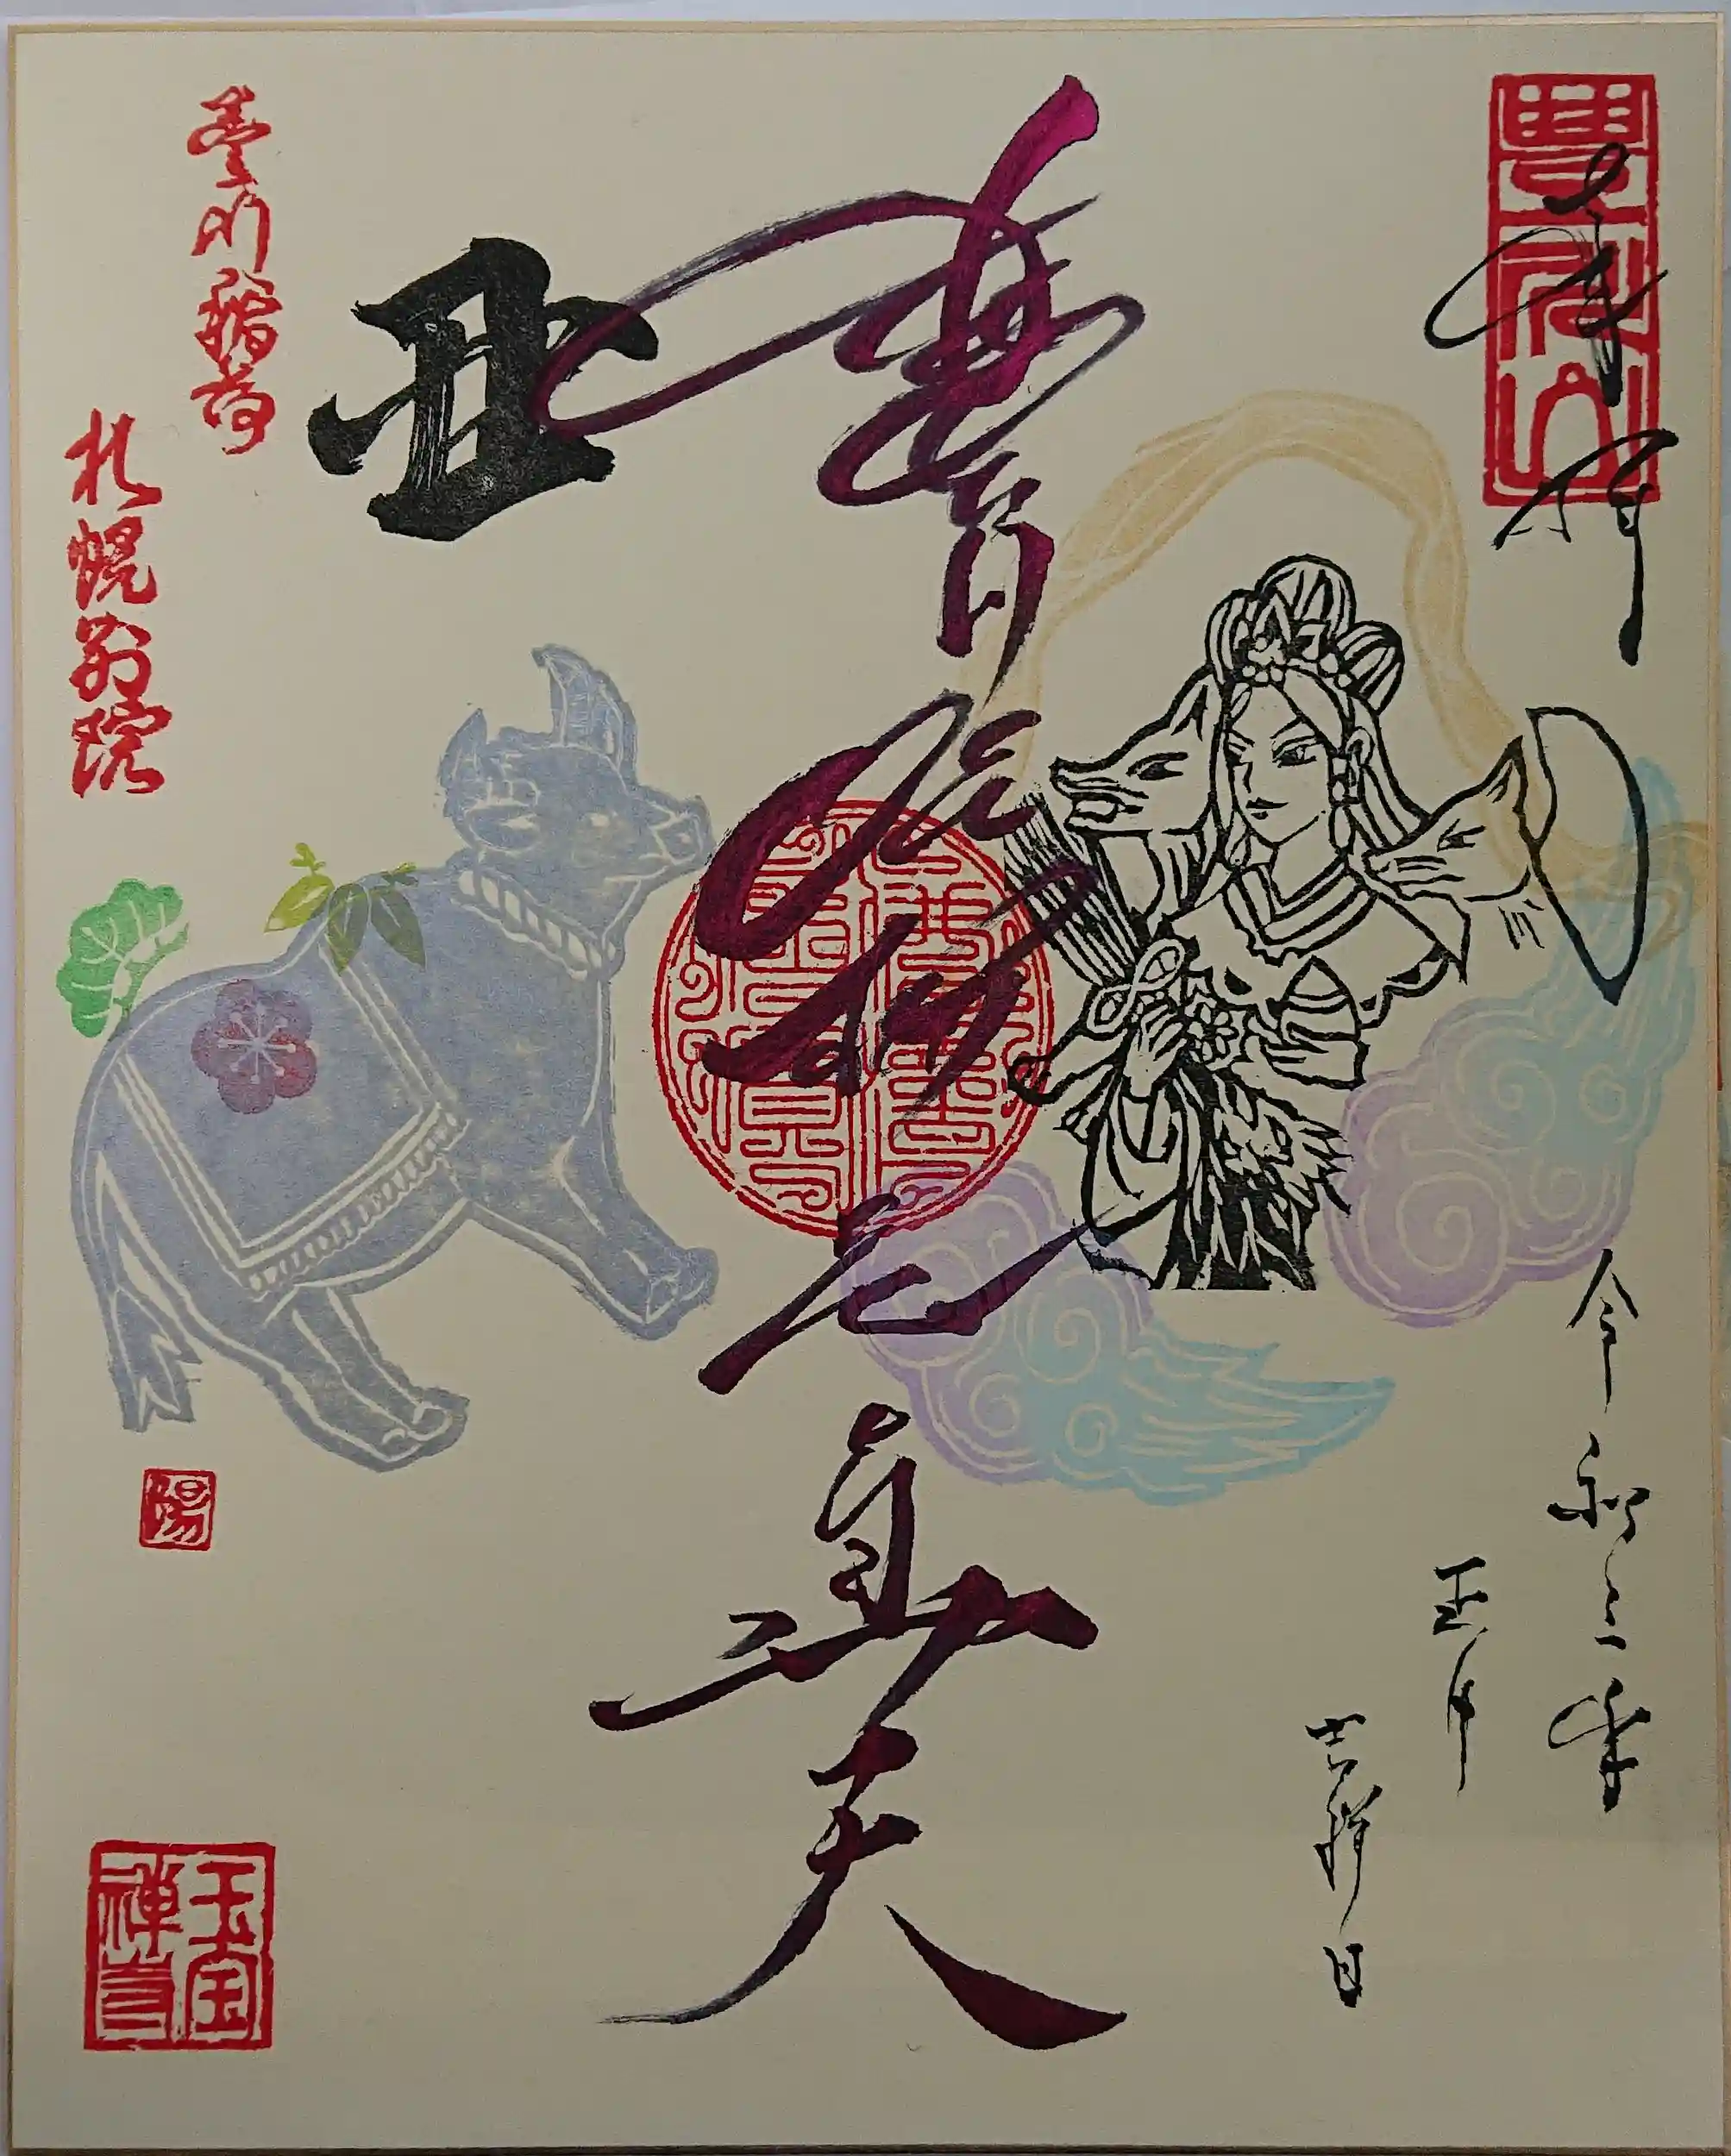 奉拝
令和三年
正月
吉祥日
豊川山
豊川吒枳尼真天
丑
豊川稲荷
札幌別院
陽
玉宝禅寺